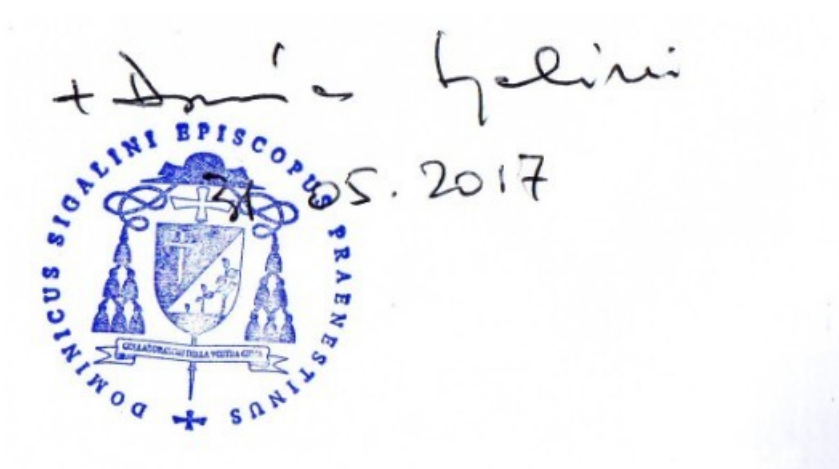 + Domenico Sigalini
31.05.2017
DOMINICUS SIGALINI EPISCOPUS PRAENESTINUS
COLLABORATORI DELLA VOSTRA GIOIA